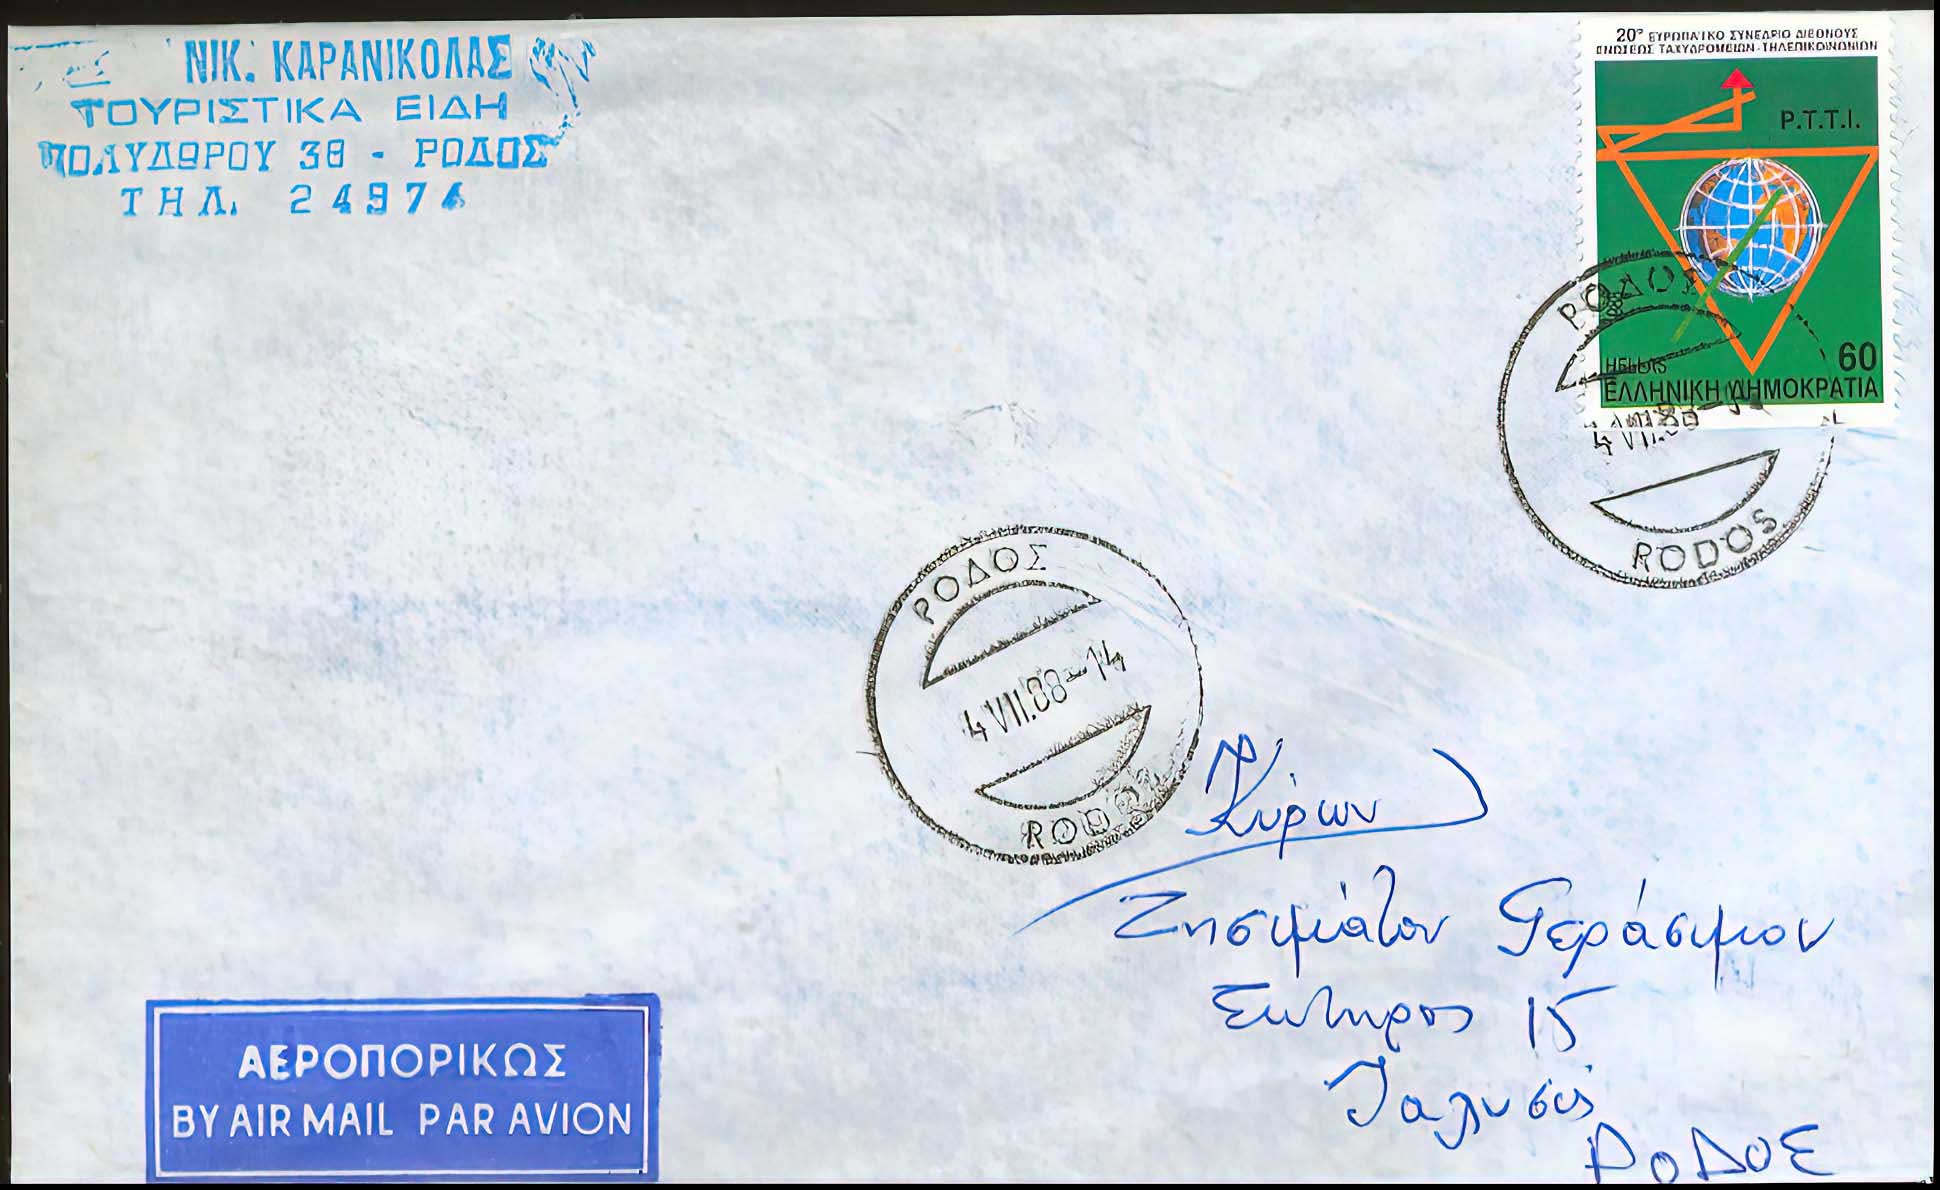 ΝΙΚ. ΚΑΡΑΝΙΚΟΛΑΣ
ΤΟΥΡΙΣΤΙΚΑ ΕΙΔΗ
ΠΟΛΥΔΩΡΟΥ 38 - ΡΟΔΟΣ
ΤΗΛ. 24974
20º ΕΥΡΩΠΑΪΚΟ ΣΥΝΕΔΡΙΟ ΔΙΕΘΝΟΥΣ
ΕΝΩΣΕΩΣ ΤΑΧΥΔΡΟΜΕΙΩΝ-ΤΗΛΕΠΙΚΟΙΝΩΝΙΩΝ
P.T.T.I.
60
HELLAS
ΕΛΛΗΝΙΚΗ ΔΗΜΟΚΡΑΤΙΑ
ΡΟΔΟΣ
4 VII.88-
RODOS
ΡΟΔΟΣ
4 VII.88-14
RODOS
Κύριον
Ζησιμάτον Γεράσιμον
Σωτηρος 15
Ιαλυσός
ΡΟΔΟΣ
ΑΕΡΟΠΟΡΙΚΩΣ
BY AIR MAIL PAR AVION